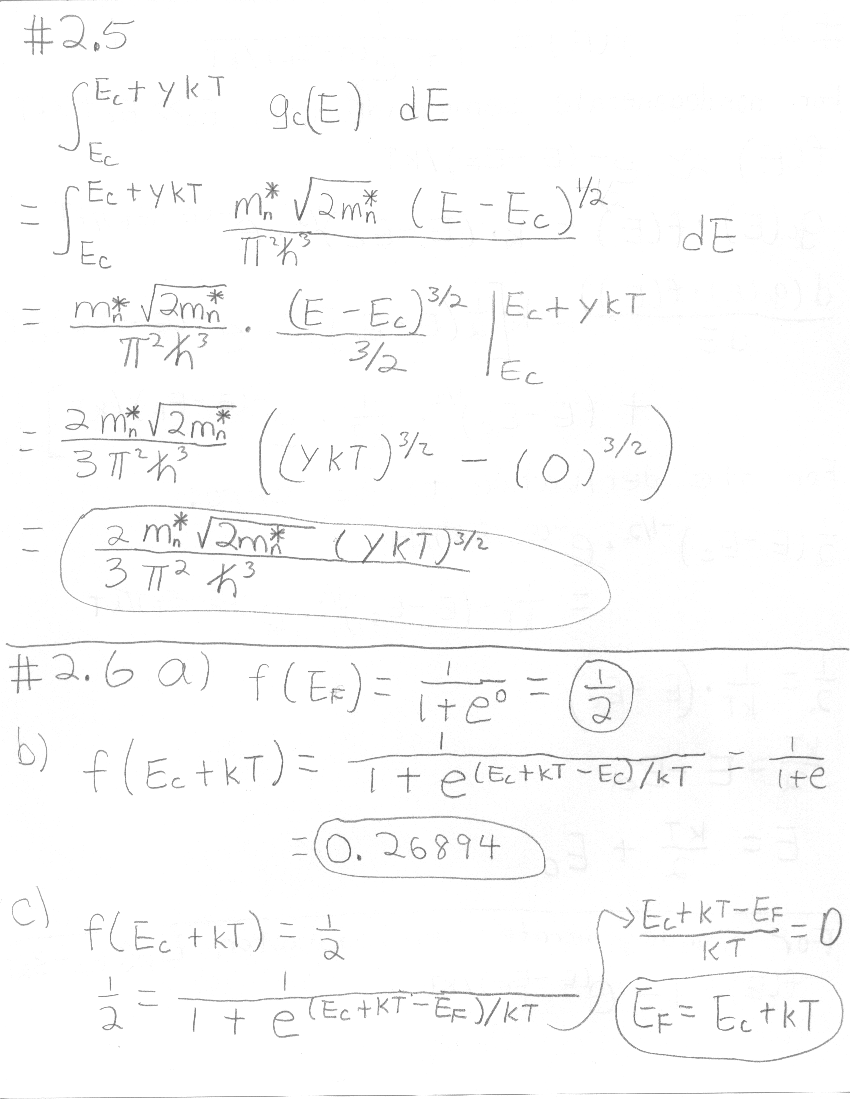 #2.5
∫_{Ec}^{Ec + ykT} gc(E) dE
= ∫_{Ec}^{Ec + ykT} \frac{mn* √(2mn*) (E - Ec)^{1/2}}{π²ħ³} dE
= \frac{mn* √(2mn*)}{π²ħ³} · \frac{(E - Ec)^{3/2}}{3/2} |_{Ec}^{Ec + ykT}
= \frac{2 mn* √(2mn*)}{3 π²ħ³} ((ykT)^{3/2} - (0)^{3/2})
= \frac{2 mn* √(2mn*) (ykT)^{3/2}}{3 π² ħ³}
#2.6 a) f(EF) = \frac{1}{1 + e^0} = \frac{1}{2}
b) f(Ec + kT) = \frac{1}{1 + e^{(Ec + kT - Ec)/kT}} = \frac{1}{1+e}
= 0.26894
c) f(Ec + kT) = \frac{1}{2}
\frac{1}{2} = \frac{1}{1 + e^{(Ec + kT - EF)/kT}} → \frac{Ec + kT - EF}{kT} = 0
EF = Ec + kT